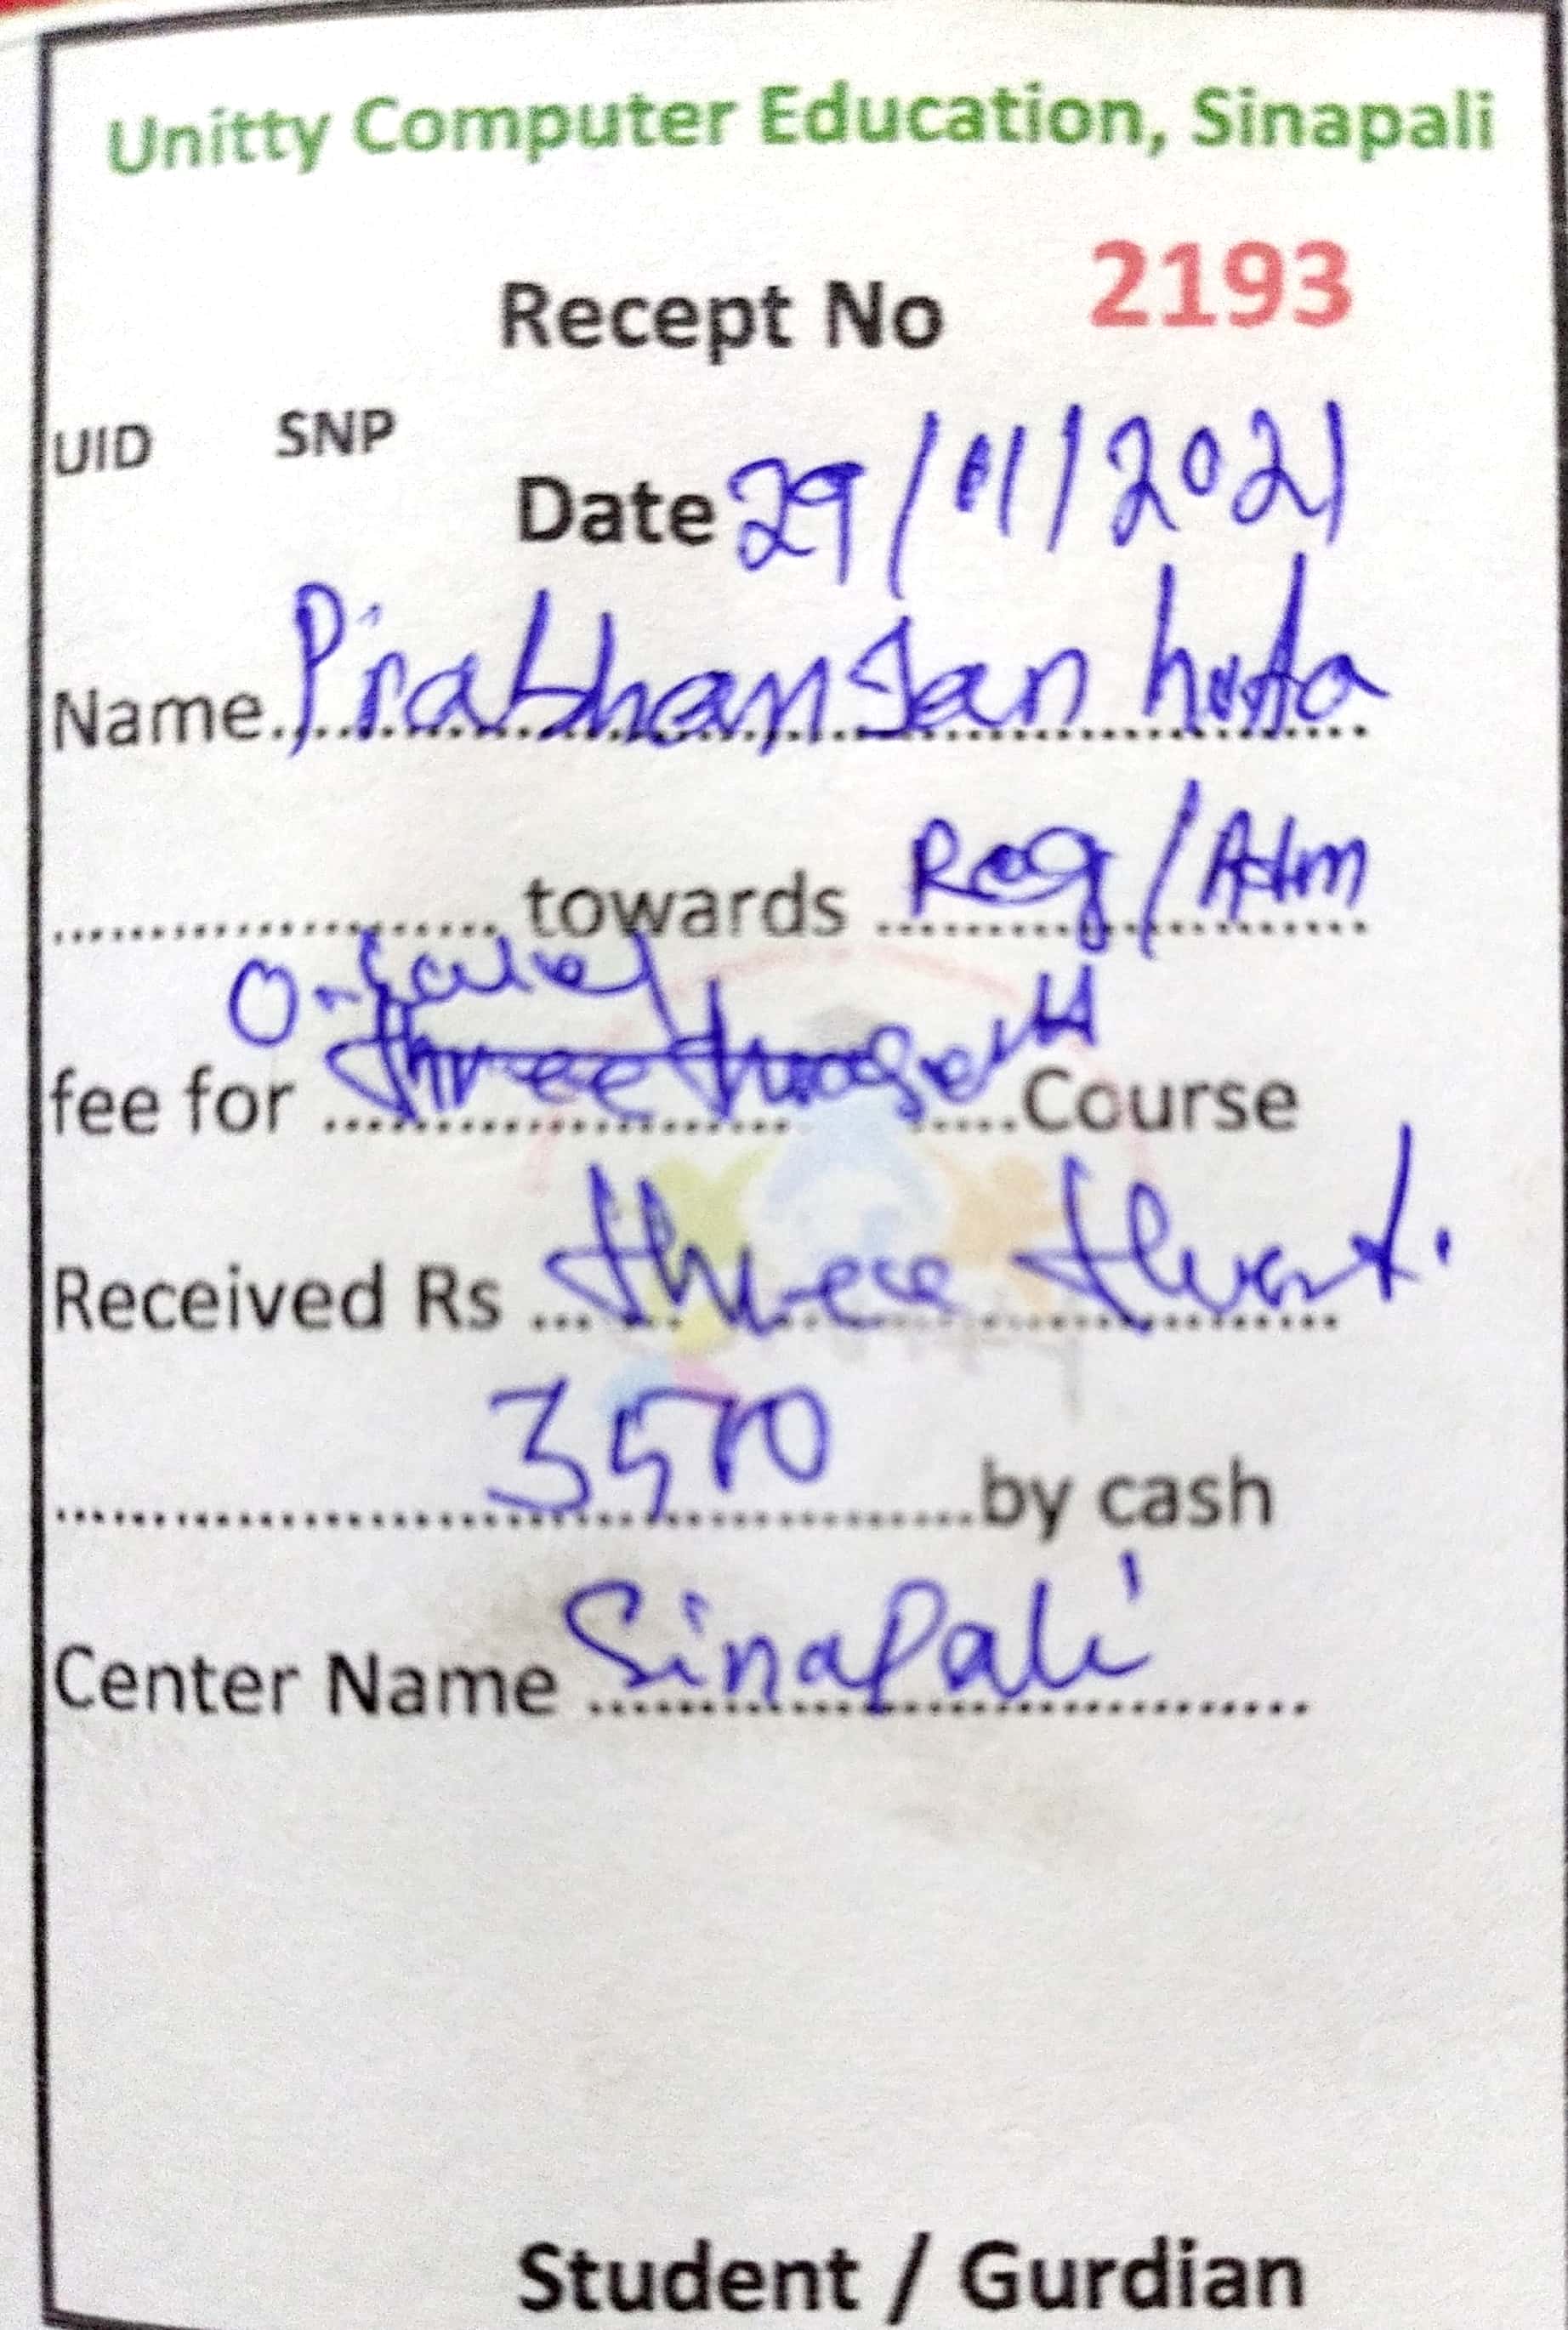 Unitty Computer Education, Sinapali
Recept No 2193
UID SNP
Date 29/11/2021
Name Prabhanjan hota
towards Reg/Adm
fee for three Course
Received Rs three
3500 by cash
Center Name Sinapali
Student / Gurdian